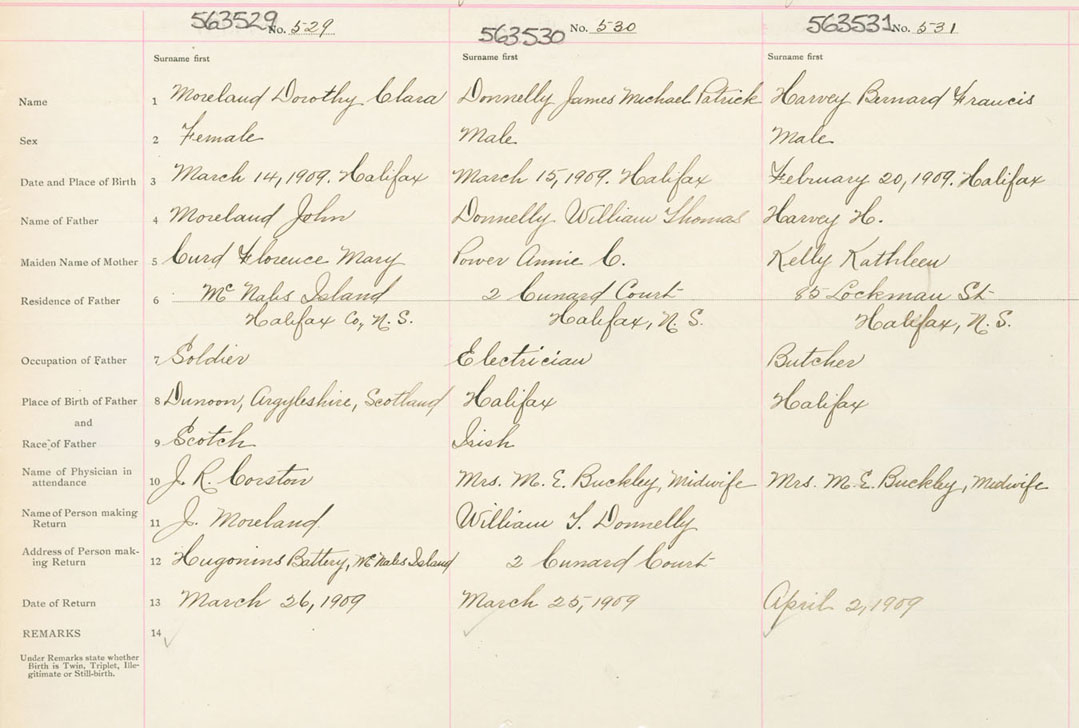 563529 No. 529 563530 No. 530 563531 No. 531
Surname first Surname first Surname first
Name 1 Moreland Dorothy Clara Donnelly James Michael Patrick Harvey Bernard Francis
Sex 2 Female Male Male
Date and Place of Birth 3 March 14, 1909. Halifax March 15, 1909. Halifax February 20, 1909. Halifax
Name of Father 4 Moreland John Donnelly William Thomas Harvey H.
Maiden Name of Mother 5 Curd Florence Mary Power Annie C. Kelly Kathleen
Residence of Father 6 Mc Nabs Island 2 Cunard Court 85 Lockman St
Halifax Co, N. S. Halifax, N. S. Halifax, N. S.
Occupation of Father 7 Soldier Electrician Butcher
Place of Birth of Father 8 Dunoon, Argyleshire, Scotland Halifax Halifax
and
Race of Father 9 Scotch Irish
Name of Physician in
attendance 10 J. R. Corston Mrs. M. E. Buckley, Midwife Mrs. M. E. Buckley, Midwife
Name of Person making
Return 11 J. Moreland. William T. Donnelly
Address of Person mak-
ing Return 12 Hugonins Battery, Mc Nabs Island 2 Cunard Court
Date of Return 13 March 26, 1909 March 25, 1909 April 2, 1909
REMARKS 14
Under Remarks state whether
Birth is Twin, Triplet, Ille-
gitimate or Still-birth.